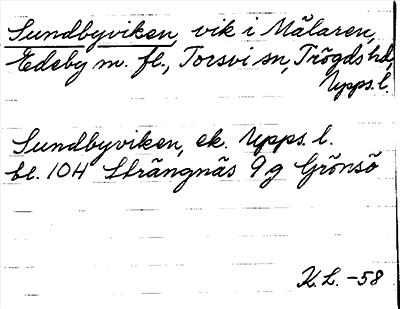 Sundbyviken, vik i Mälaren,
Edeby m. fl., Torsvi sn, Trögds hd,
Upps. l.
Sundbyviken, ek. Upps. l.
bl. 104 Strängnäs 9 g Grönsö
K. L. -58